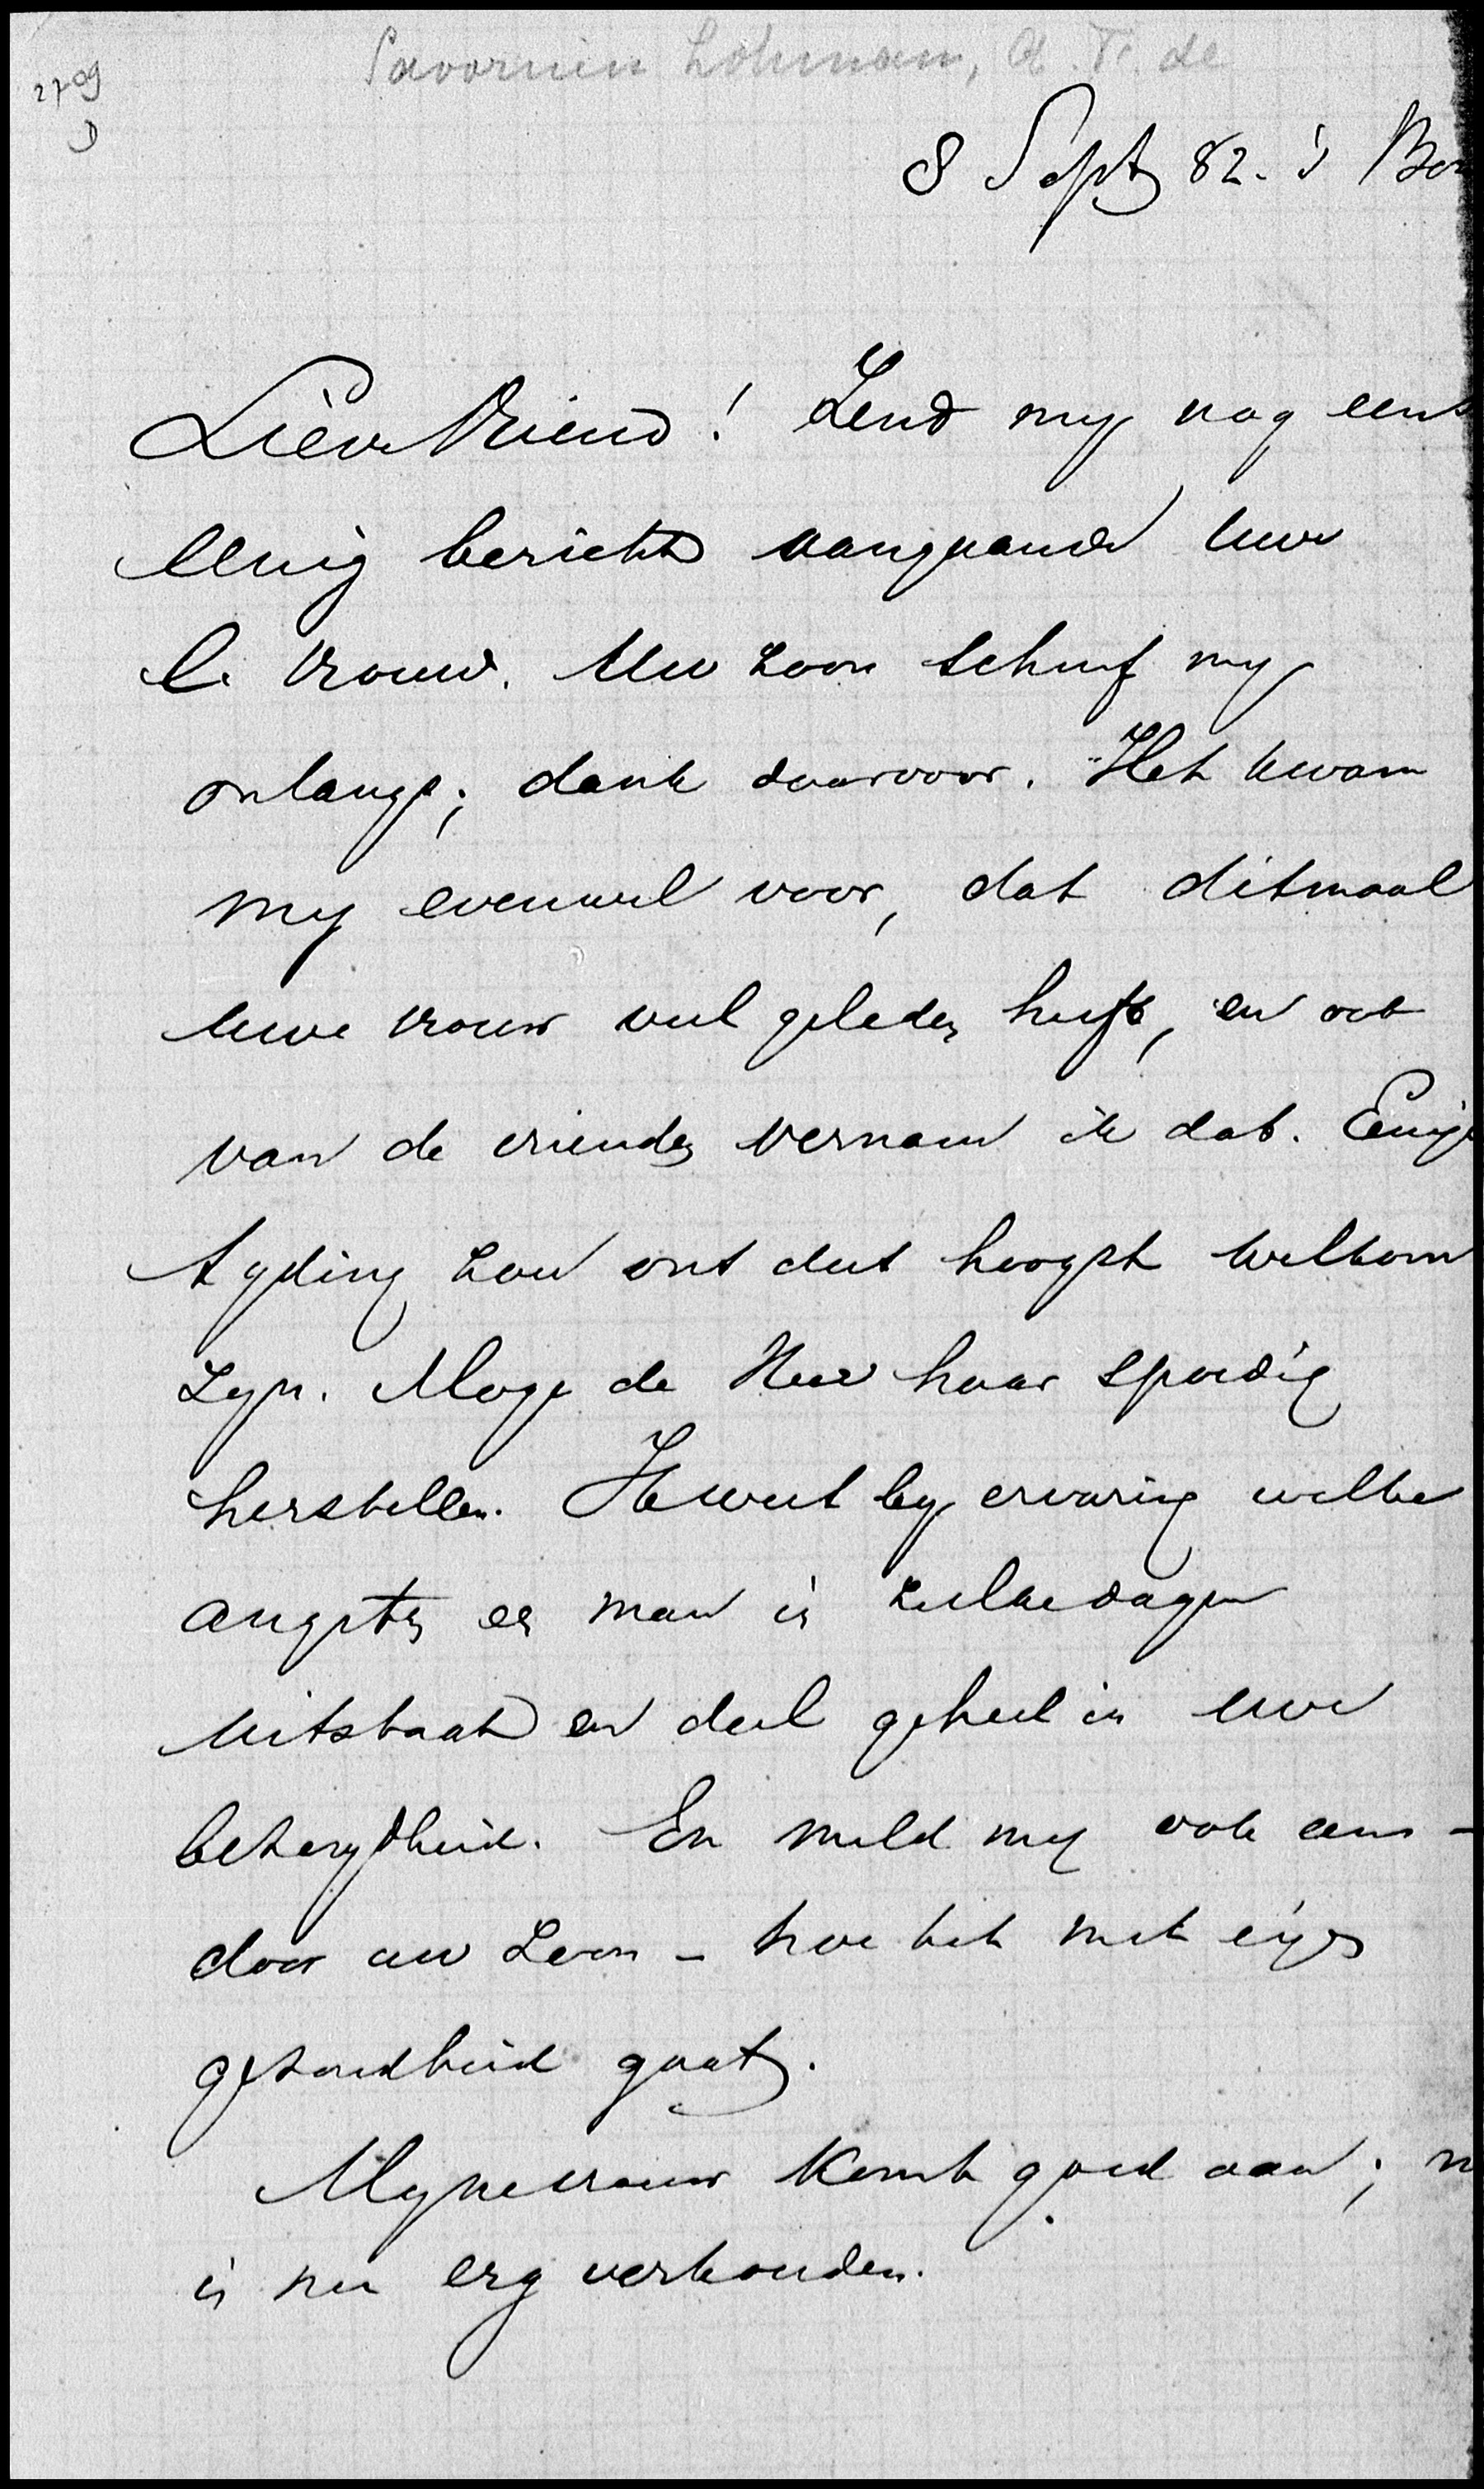 Savornin Lohman, A. F. de
2709
D
8 Sept 82. 's Bo
Lieve Vriend! Zend my nog eens
eenig bericht aangaande uwe
l. vrouw. Uw zoon schreef my
onlangs; dank daarvoor. Het kwam
my evenwel voor, dat ditmaal
uwe vrouw veel geleden heeft, en ook
van de vrienden vernam ik dat. Eenige
tyding zou ons dus hoogst welkom
zyn. Moge de Heer haar spoedig
herstellen. Ik weet by ervaring welke
angsten er man in zulke dagen
uitstaat en deel geheel in uwe
bezorgdheid. En meld my ook eens -
door uw zoon - hoe het met eigen
gezondheid gaat.
Myne vrouw komt goed aan;
is nu erg verkouden.